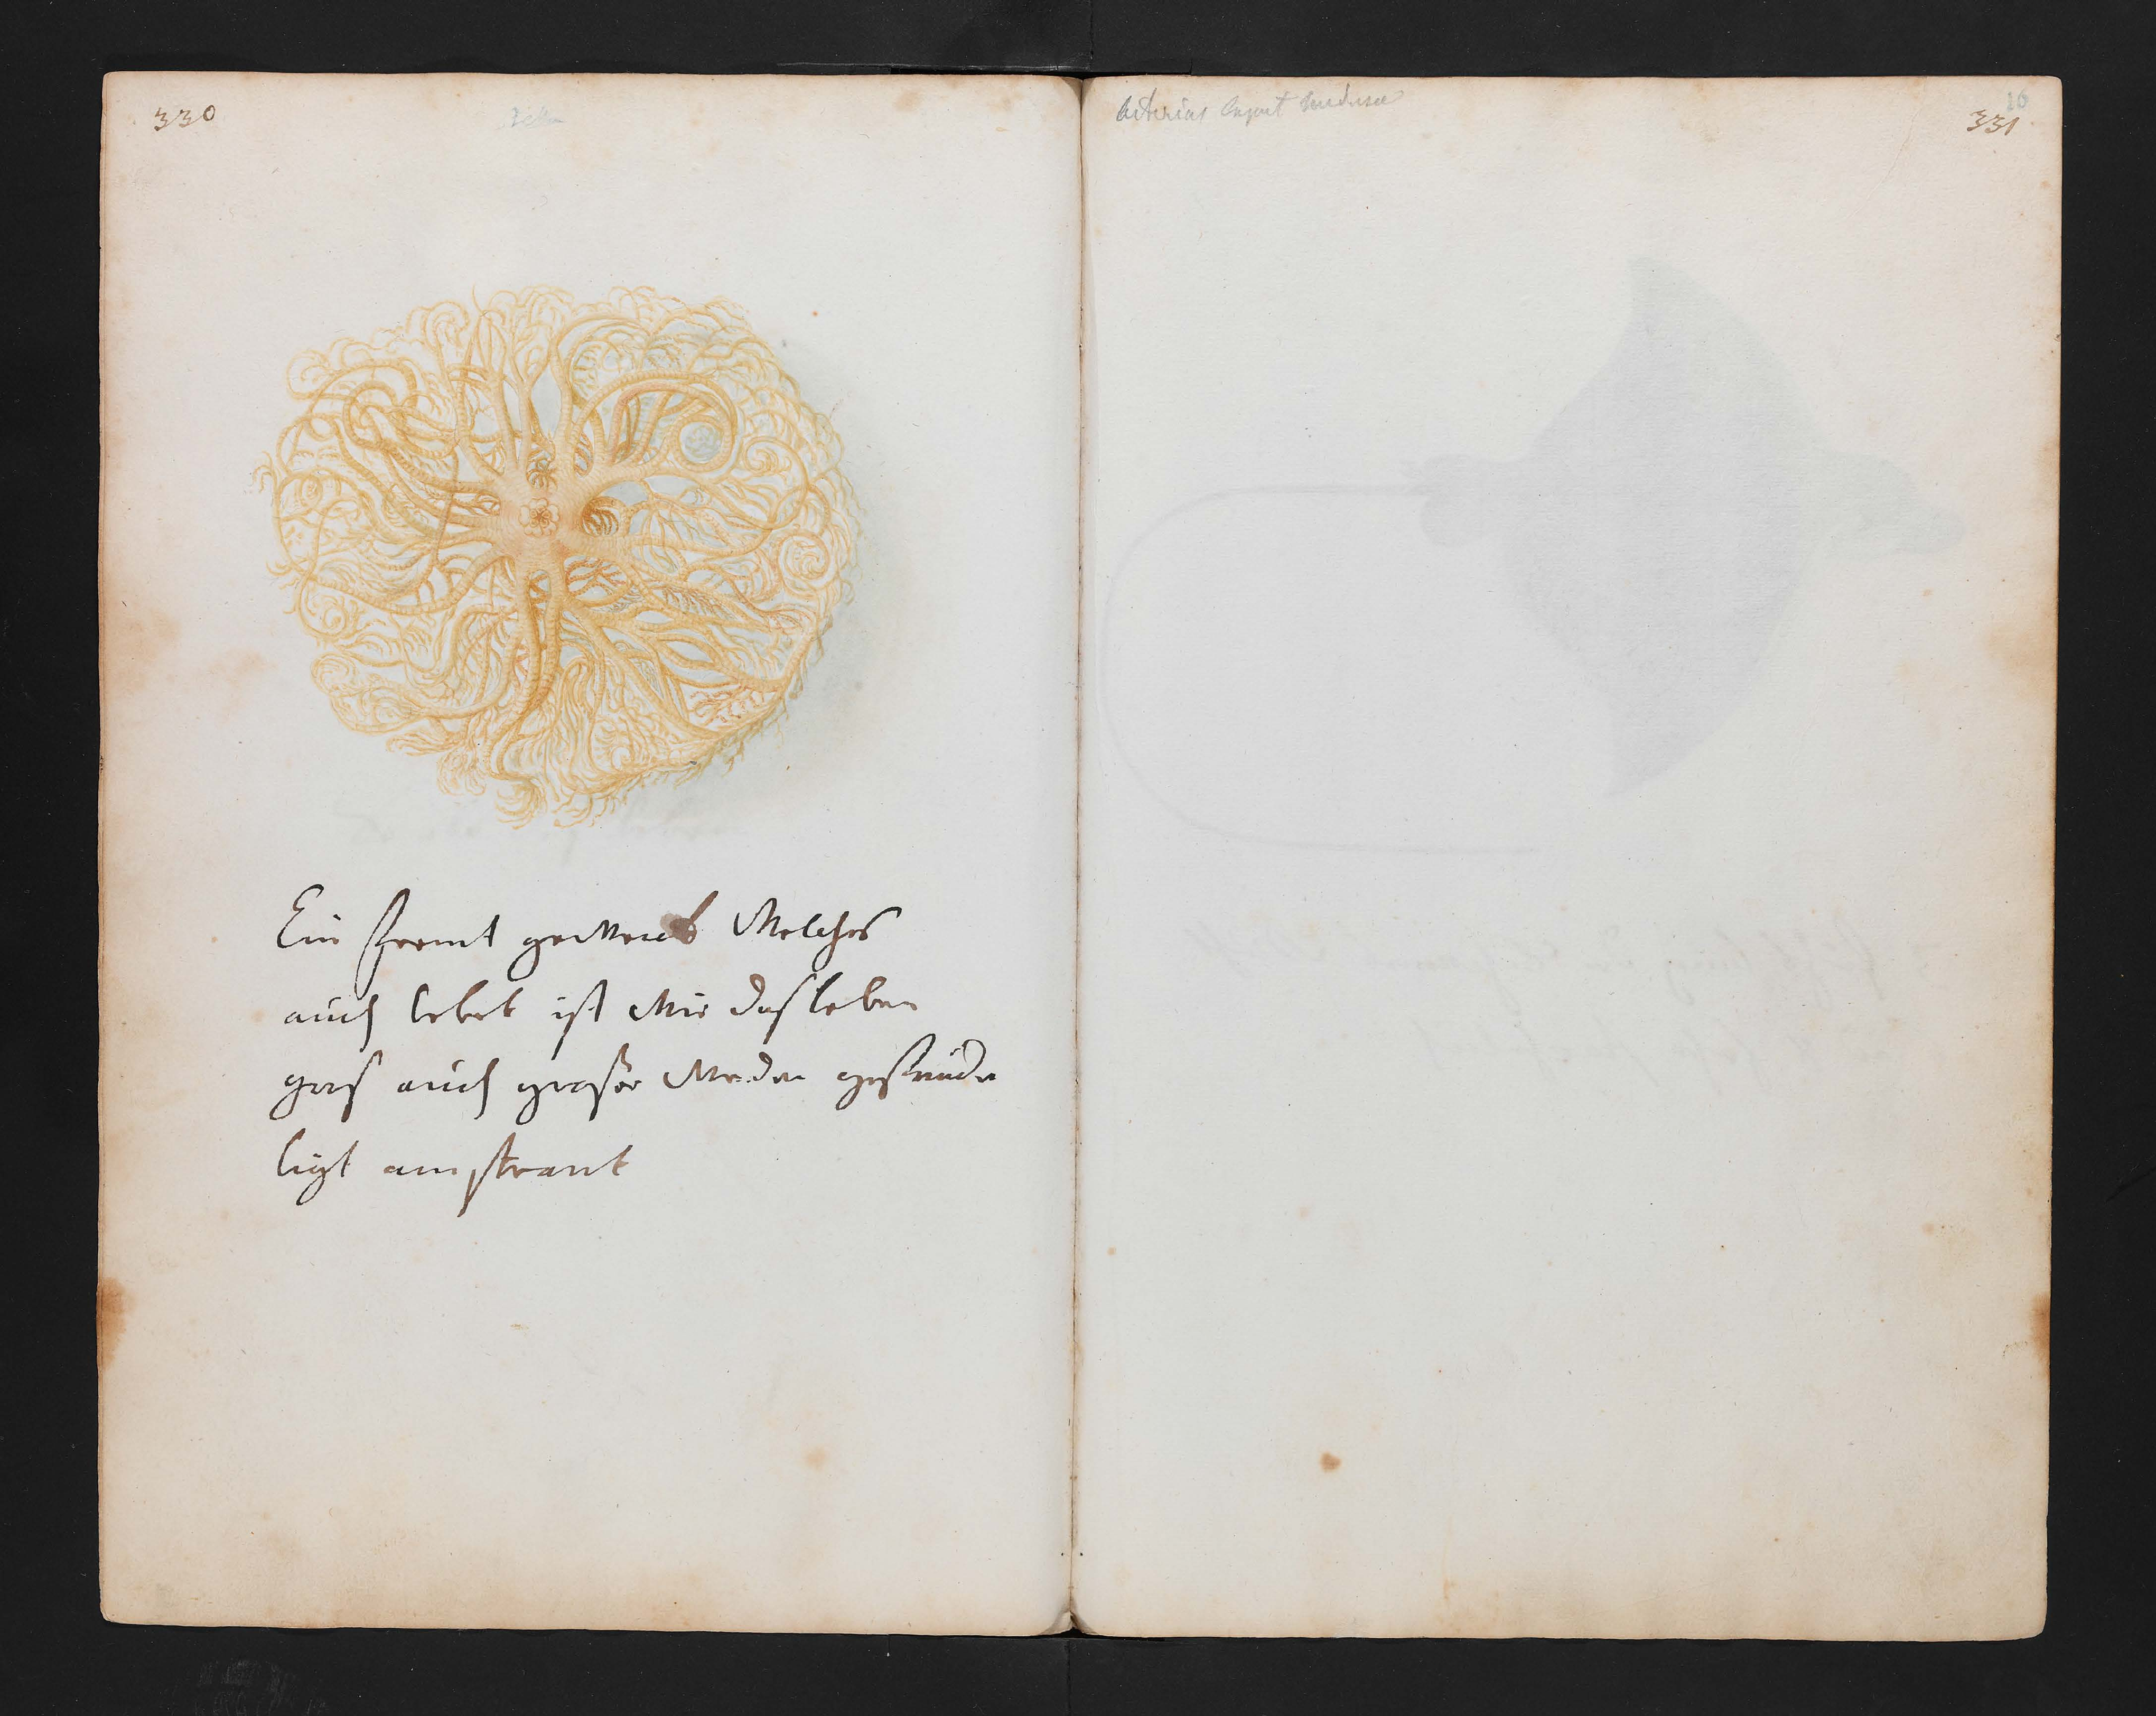 330
Ein fremt gewecks Welches
auch lebet ist Wie daß leben
groß auch großer Werden gefunden
ligt am strant
Asterias Caput Medusae
331